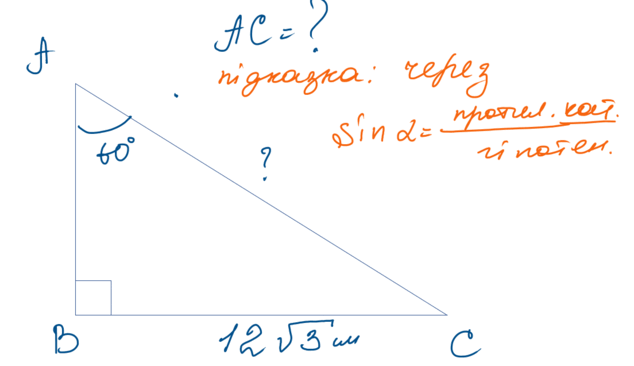 AC = ?
A
підказка: через
sin α = протил. кат.
гіпотен.
60°
?
B
12√3 см
C